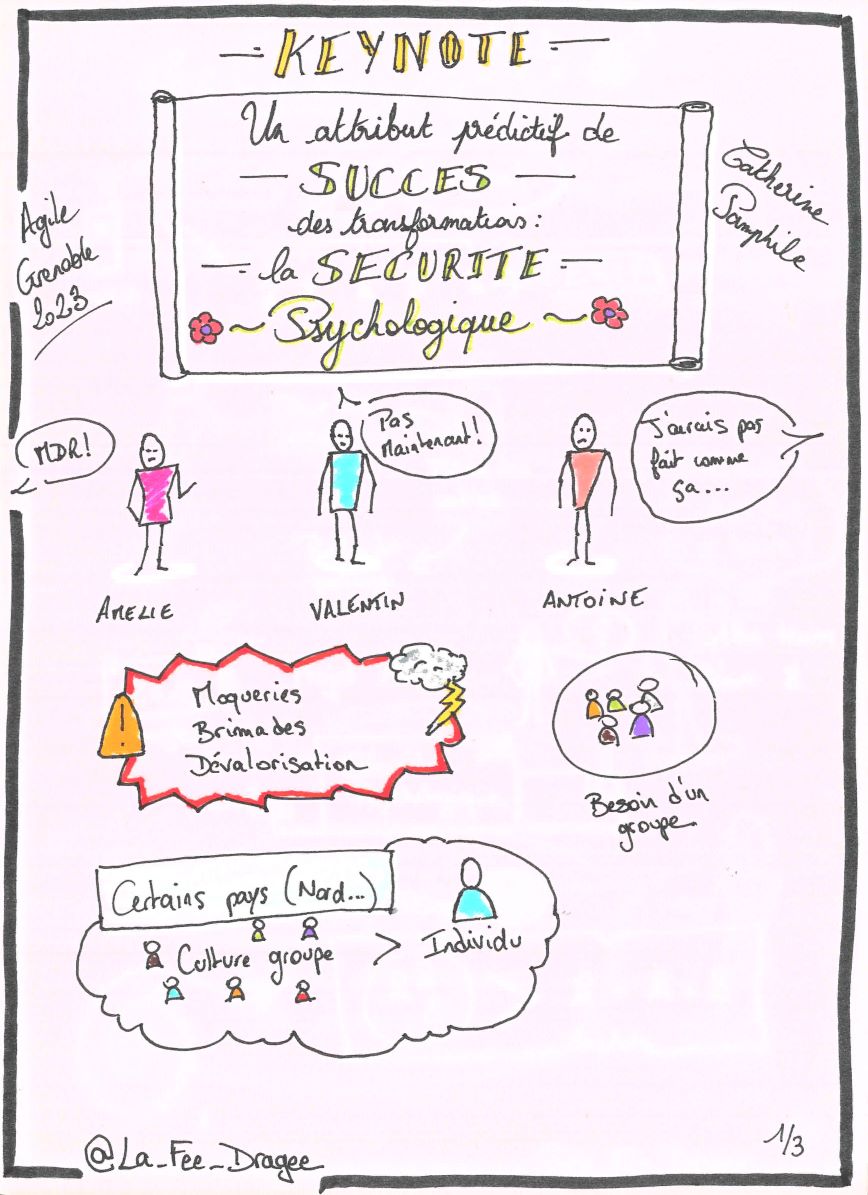 KEYNOTE
Un attribut prédictif de
SUCCES
des transformations :
la SECURITE
Psychologique
Agile
Grenoble
2023
Catherine
Pamphile
MDR!
Pas
Maintenant!
J'aurais pas
fait comme
ça...
AMELIE
VALENTIN
ANTOINE
!
Moqueries
Brimades
Dévalorisation
Besoin d'un
groupe
Certains pays (Nord...)
Culture groupe > Individu
@La_Fee_Dragee
1/3